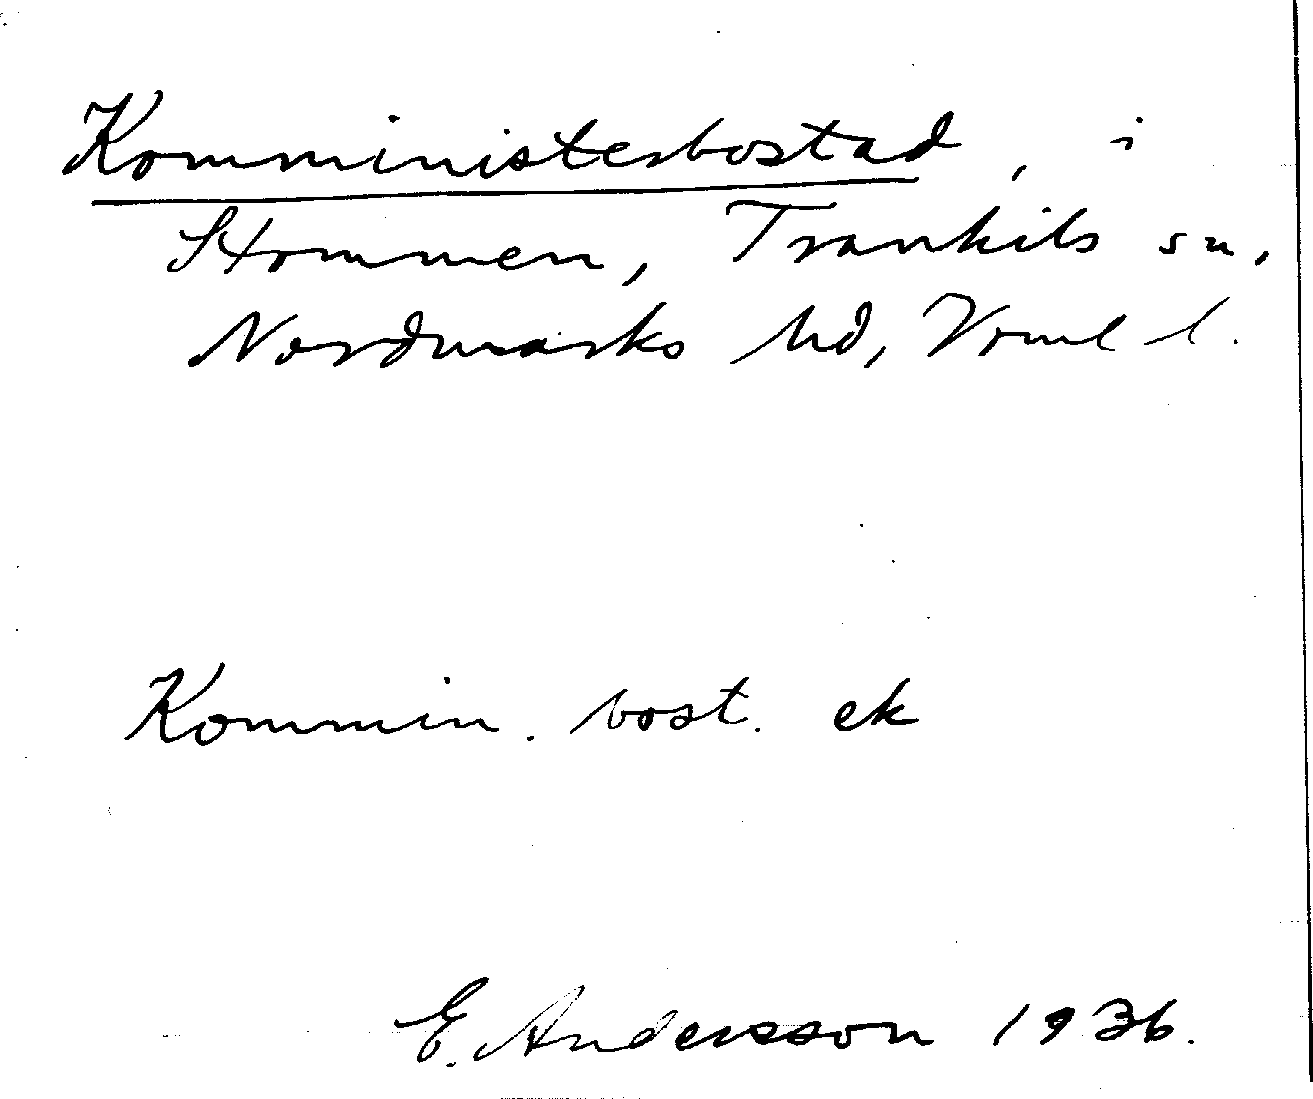 Komministerbostad, i
Stommen, Trankils sn,
Nordmarks hd, Vrml l.
Kommin. bost. ek
E. Andersson 1936.